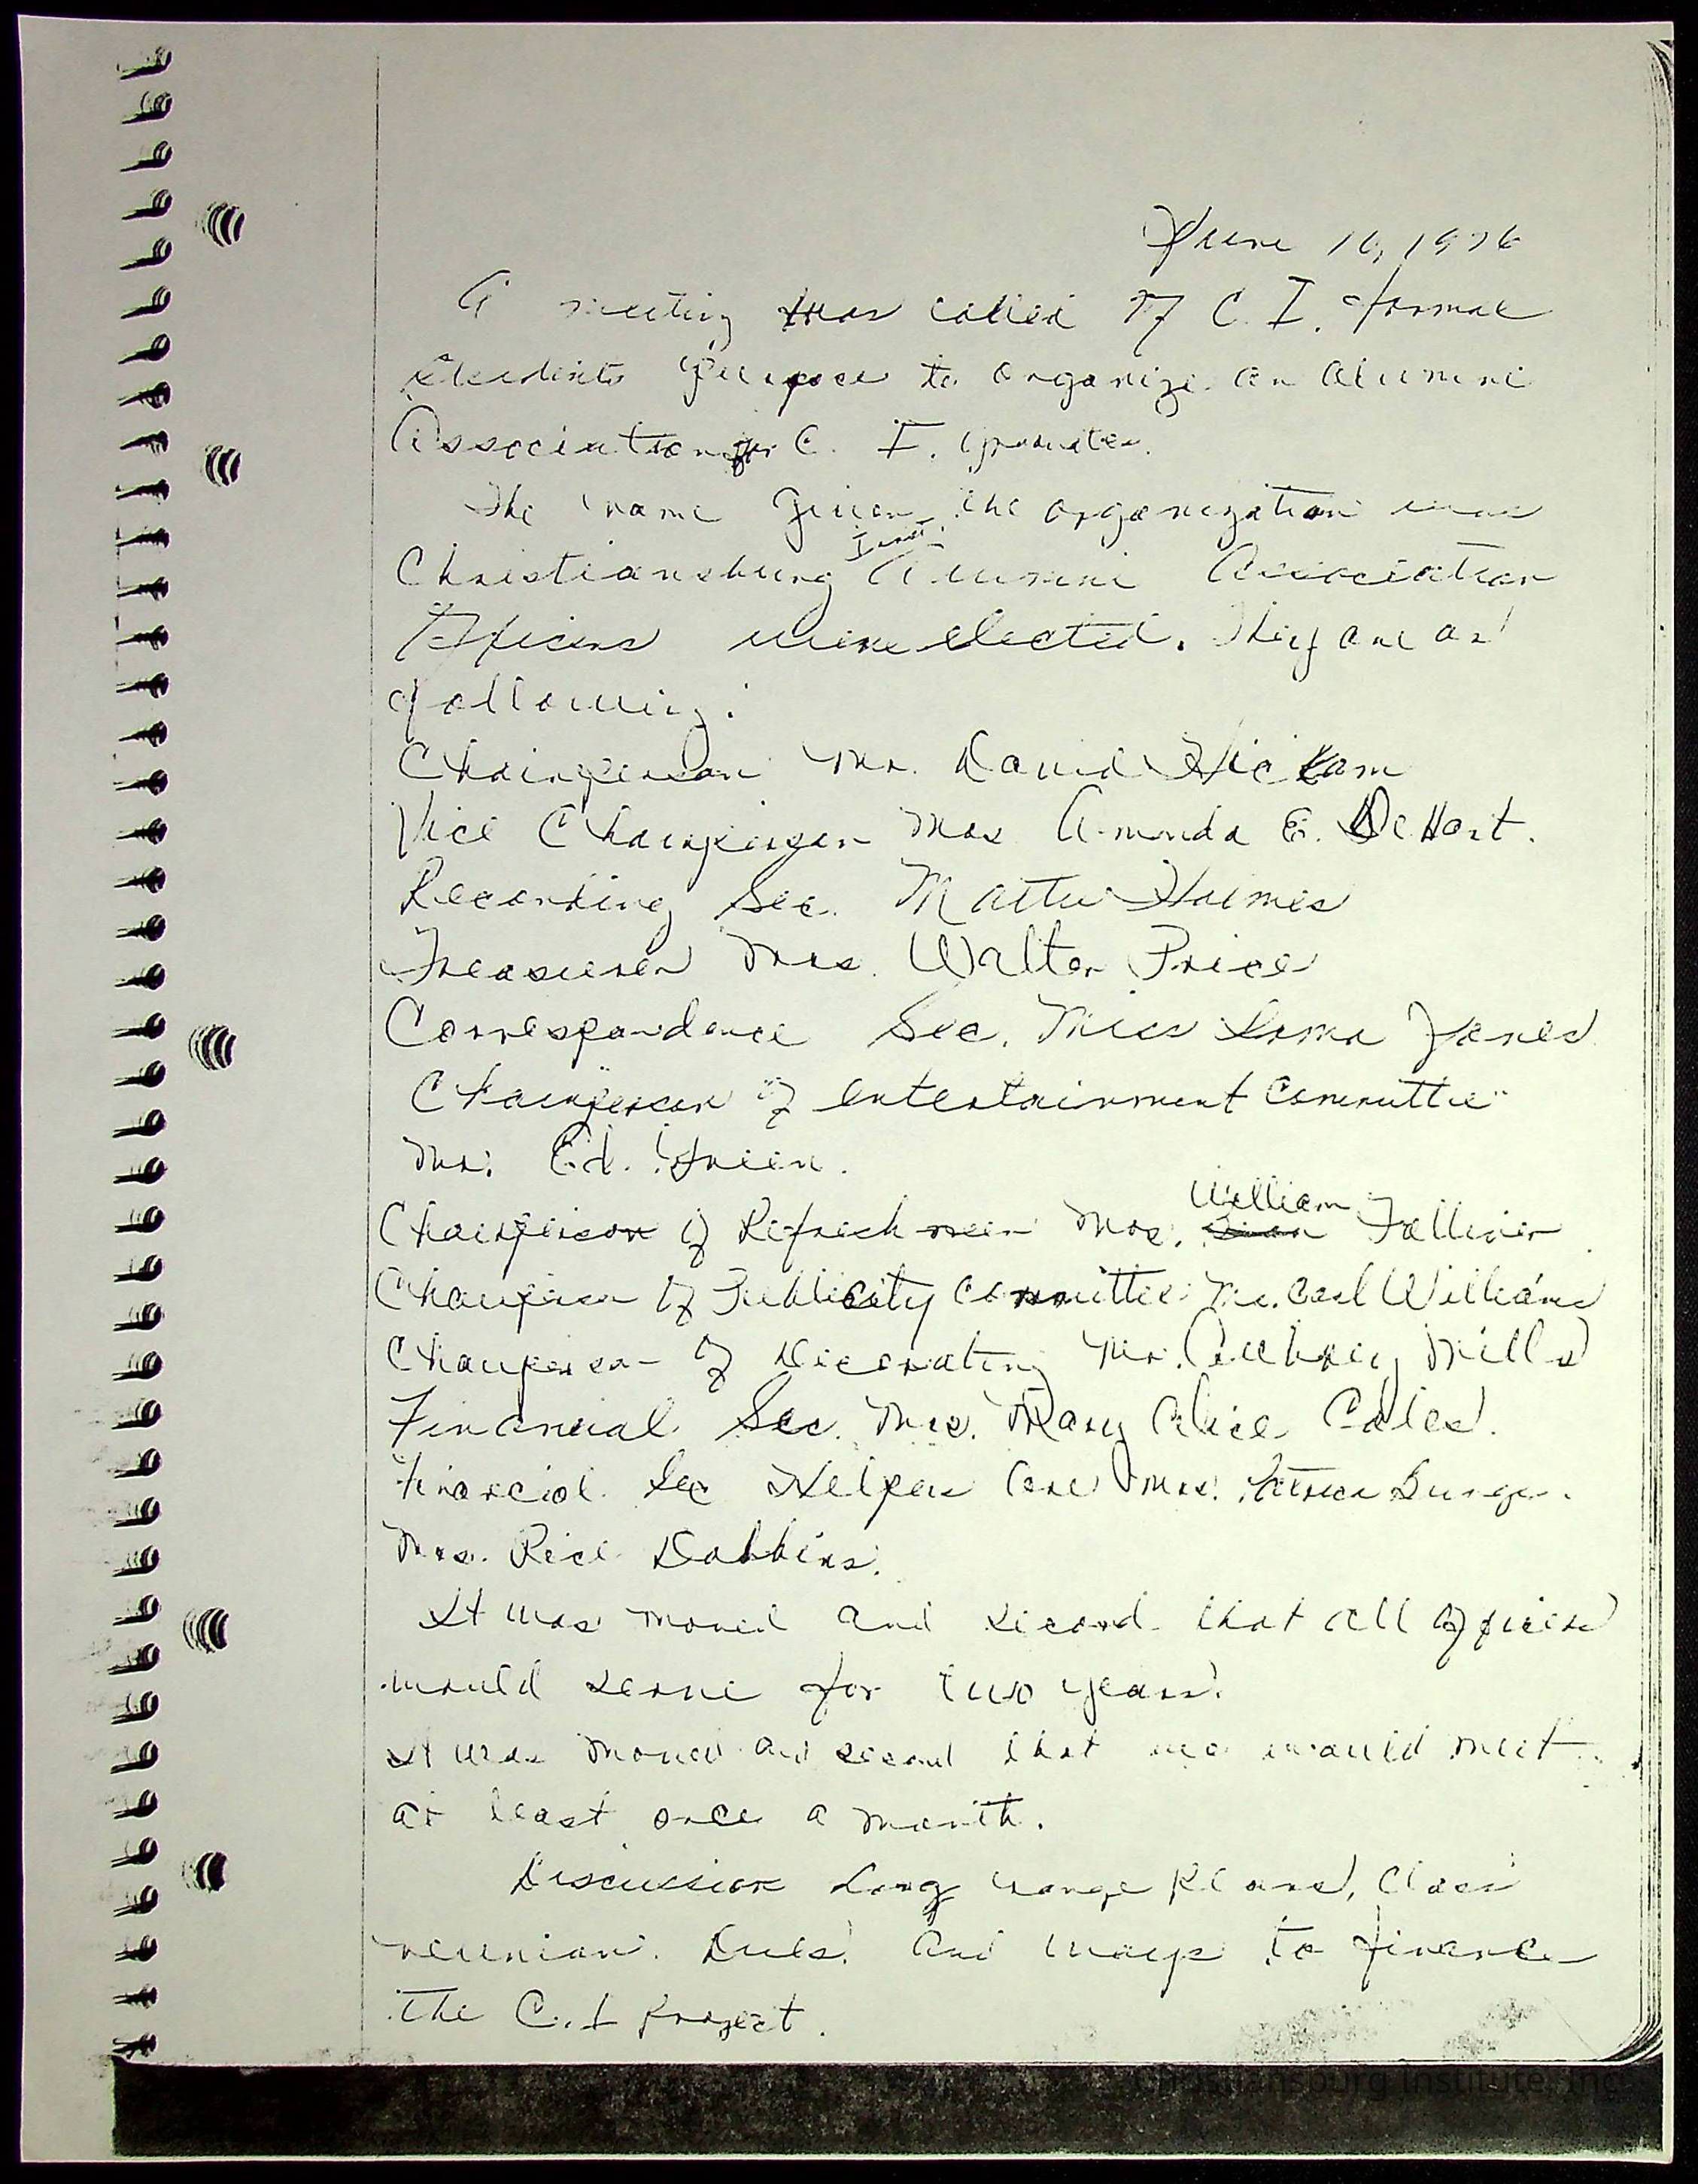 June 16, 1976
A meeting was called of C. I. former
students purpose to organize an alumni
Association for C. I. graduates.
The name given the organization was
Inst.
Christiansburg Alumni Association
Officers were elected. They are as
following:
Chairperson Mr. David Hickam
Vice Chairperson Mrs Amanda E. DeHart.
Recording Sec. Mattie Holmes
Treasurer Mrs. Walter Price
Correspondence Sec. Miss Loma Jones
Chairperson "of entertainment Committee"
Mr. Ed. Green.
William
Chairperson of Refreshmen Mrs. Falliner
Chairperson of Publicity Committee Mr. Carl Williams
Chairperson of Decorating Mr. Aubrey Mills
Financial Sec. Mrs. Mary Alice Cales.
Financial Sec Helpers are Mrs. Burger.
Mrs. Rice Dobbins.
It was moved and second that all officers
would serve for two years.
It was moved and second that we would meet
at least once a month.
Discussion Long range plans, Class
reunion. Dues. and ways to finance
the C. I project.
Christiansburg Institute, Inc